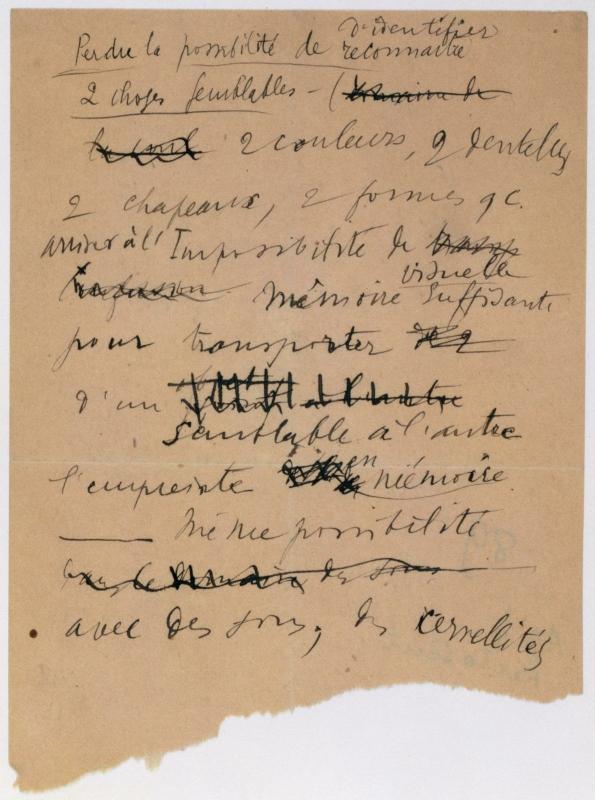 d'identifier
Perdre la possibilité de reconnaitre
2 choses semblables – (
2 couleurs, 2 dentelles
2 chapeaux, 2 formes qc.
arriver à l'Impossibilité de
visuelle
mémoire suffisante
pour transporter de 2
d'un
semblable à l'autre
l'empreinte en mémoire
— Même possibilité
des sons
avec des sons; des cervellités